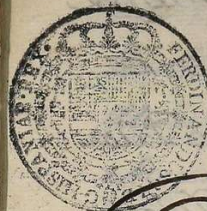 FERDINAND
HISPANIAR REX